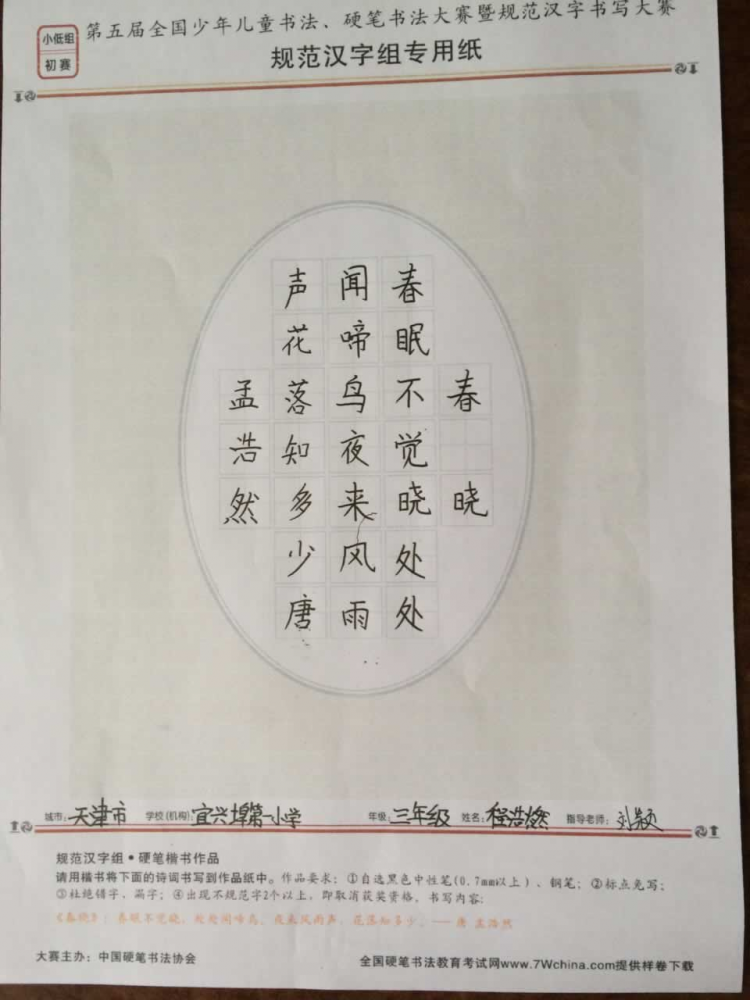 小低组
初赛
第五届全国少年儿童书法、硬笔书法大赛暨规范汉字书写大赛
规范汉字组专用纸
春晓
春眠不觉晓处处
闻啼鸟夜来风雨
声花落知多少唐
孟浩然
城市：天津市 学校(机构)：宜兴埠第一小学 年级：三年级 姓名：程浩燃 指导老师：刘颖
规范汉字组•硬笔楷书作品
请用楷书将下面的诗词书写到作品纸中。作品要求：①自选黑色中性笔(0.7mm以上)、钢笔；②标点免写；
③杜绝错字、漏字；④出现不规范字2个以上，即取消获奖资格。书写内容：
《春晓》：春眠不觉晓，处处闻啼鸟。夜来风雨声，花落知多少。——唐 孟浩然
大赛主办：中国硬笔书法协会 全国硬笔书法教育考试网www.7Wchina.com提供样卷下载